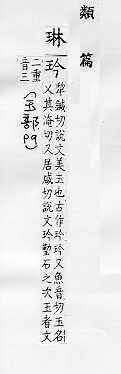 類篇
琳玲
犂鍼切說文美玉也古作玪玪又魚音切玉名
又其淹切又居咸切說文玪塾石之次玉者文
二重音三
(玉部pg)